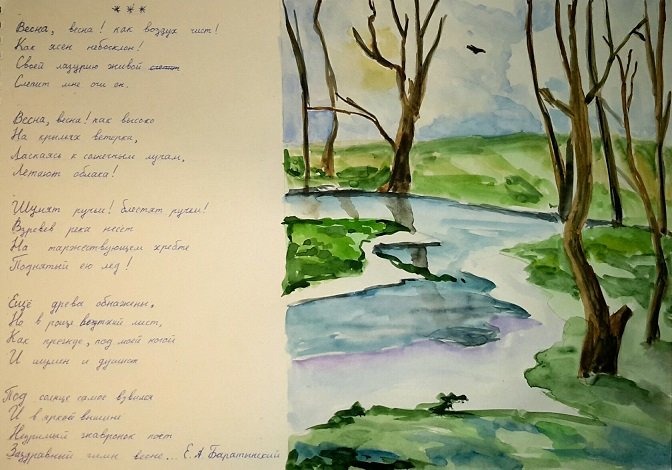 ***
Весна, весна! как воздух чист!
Как ясен небосклон!
Своей лазурию живой
Слепит мне очи он.
Весна, весна! как высоко
На крыльях ветерка,
Ласкаясь к солнечным лучам,
Летают облака!
Шумят ручьи! блестят ручьи!
Взревев река несёт
На торжествующем хребте
Поднятый ею лёд!
Ещё древа обнажены,
Но в роще ветхий лист,
Как прежде, под моей ногой
И шумен и душист
Под солнце самое взвился
И в яркой вышине
Незримый жавронок поёт
Заздравный гимн весне... Е.А. Баратынский